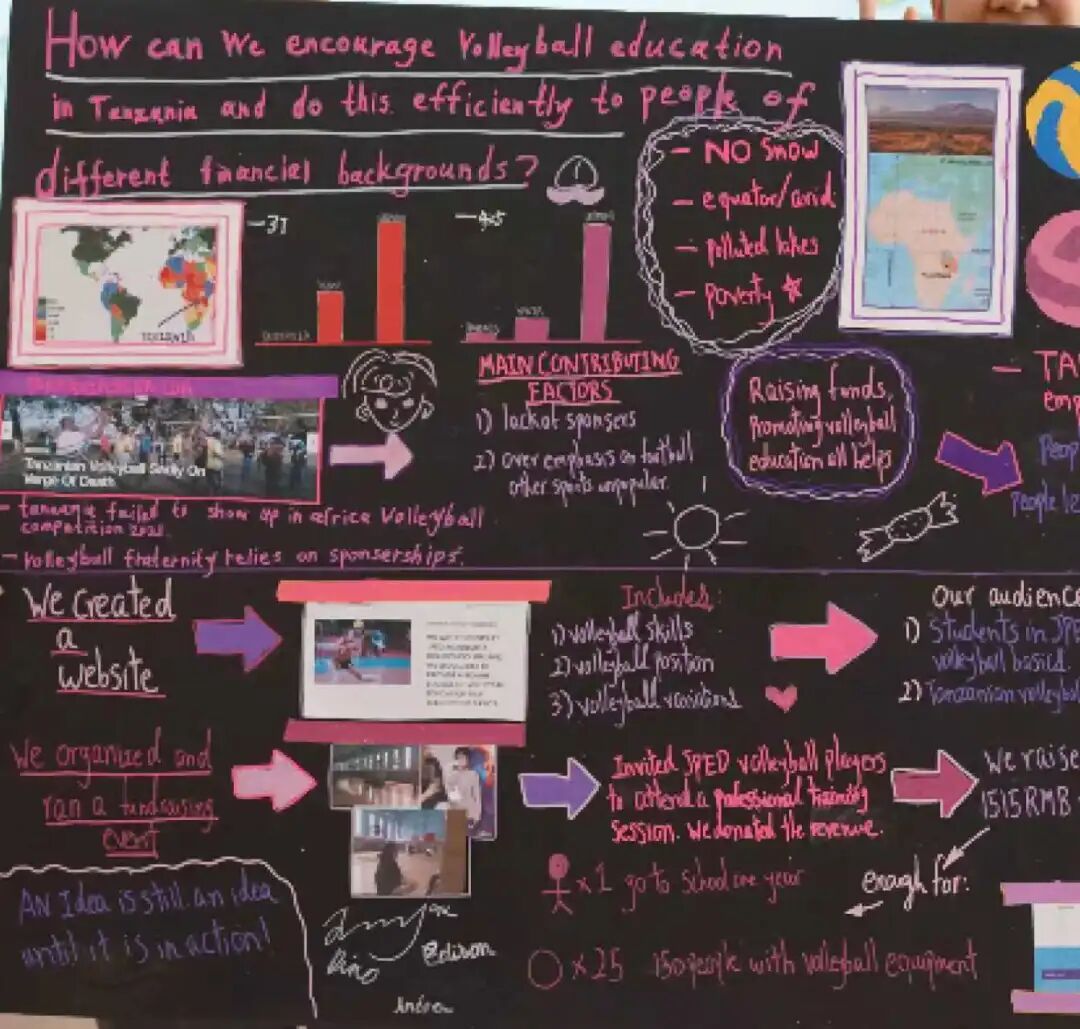 How can We encourage Volleyball education
in Tanzania and do this efficiently to people of
different financial backgrounds?
- NO Snow
- equator/arid
- polluted lakes
- poverty
MAIN CONTRIBUTING
FACTORS
1) lack of sponsers
2) over emphasis on football
other sports unpopular.
Raising funds,
Promoting volleyball
education all helps
- TA
emp
Peop
People le
Tanzanian Volleyball Sadly On
Verge Of Death
- tanzania failed to show up in africa Volleyball
competition
- volleyball fraternity relies on sponserships.
We created
a
website
Includes:
1) volleyball skills
2) volleyball position
3) volleyball variations
Our audience
1) Students in JPED
volleyball basics
2) Tanzanian volleyball
We organized and
ran a fundraising
event
Invited JPED volleyball players
to attend a professional training
session. We donated the revenue.
We raise
1515 RMB
enough for:
x 1 go to School one year
x 25 150 people with volleyball equipment
AN Idea is still an idea
until it is in action!
Edison